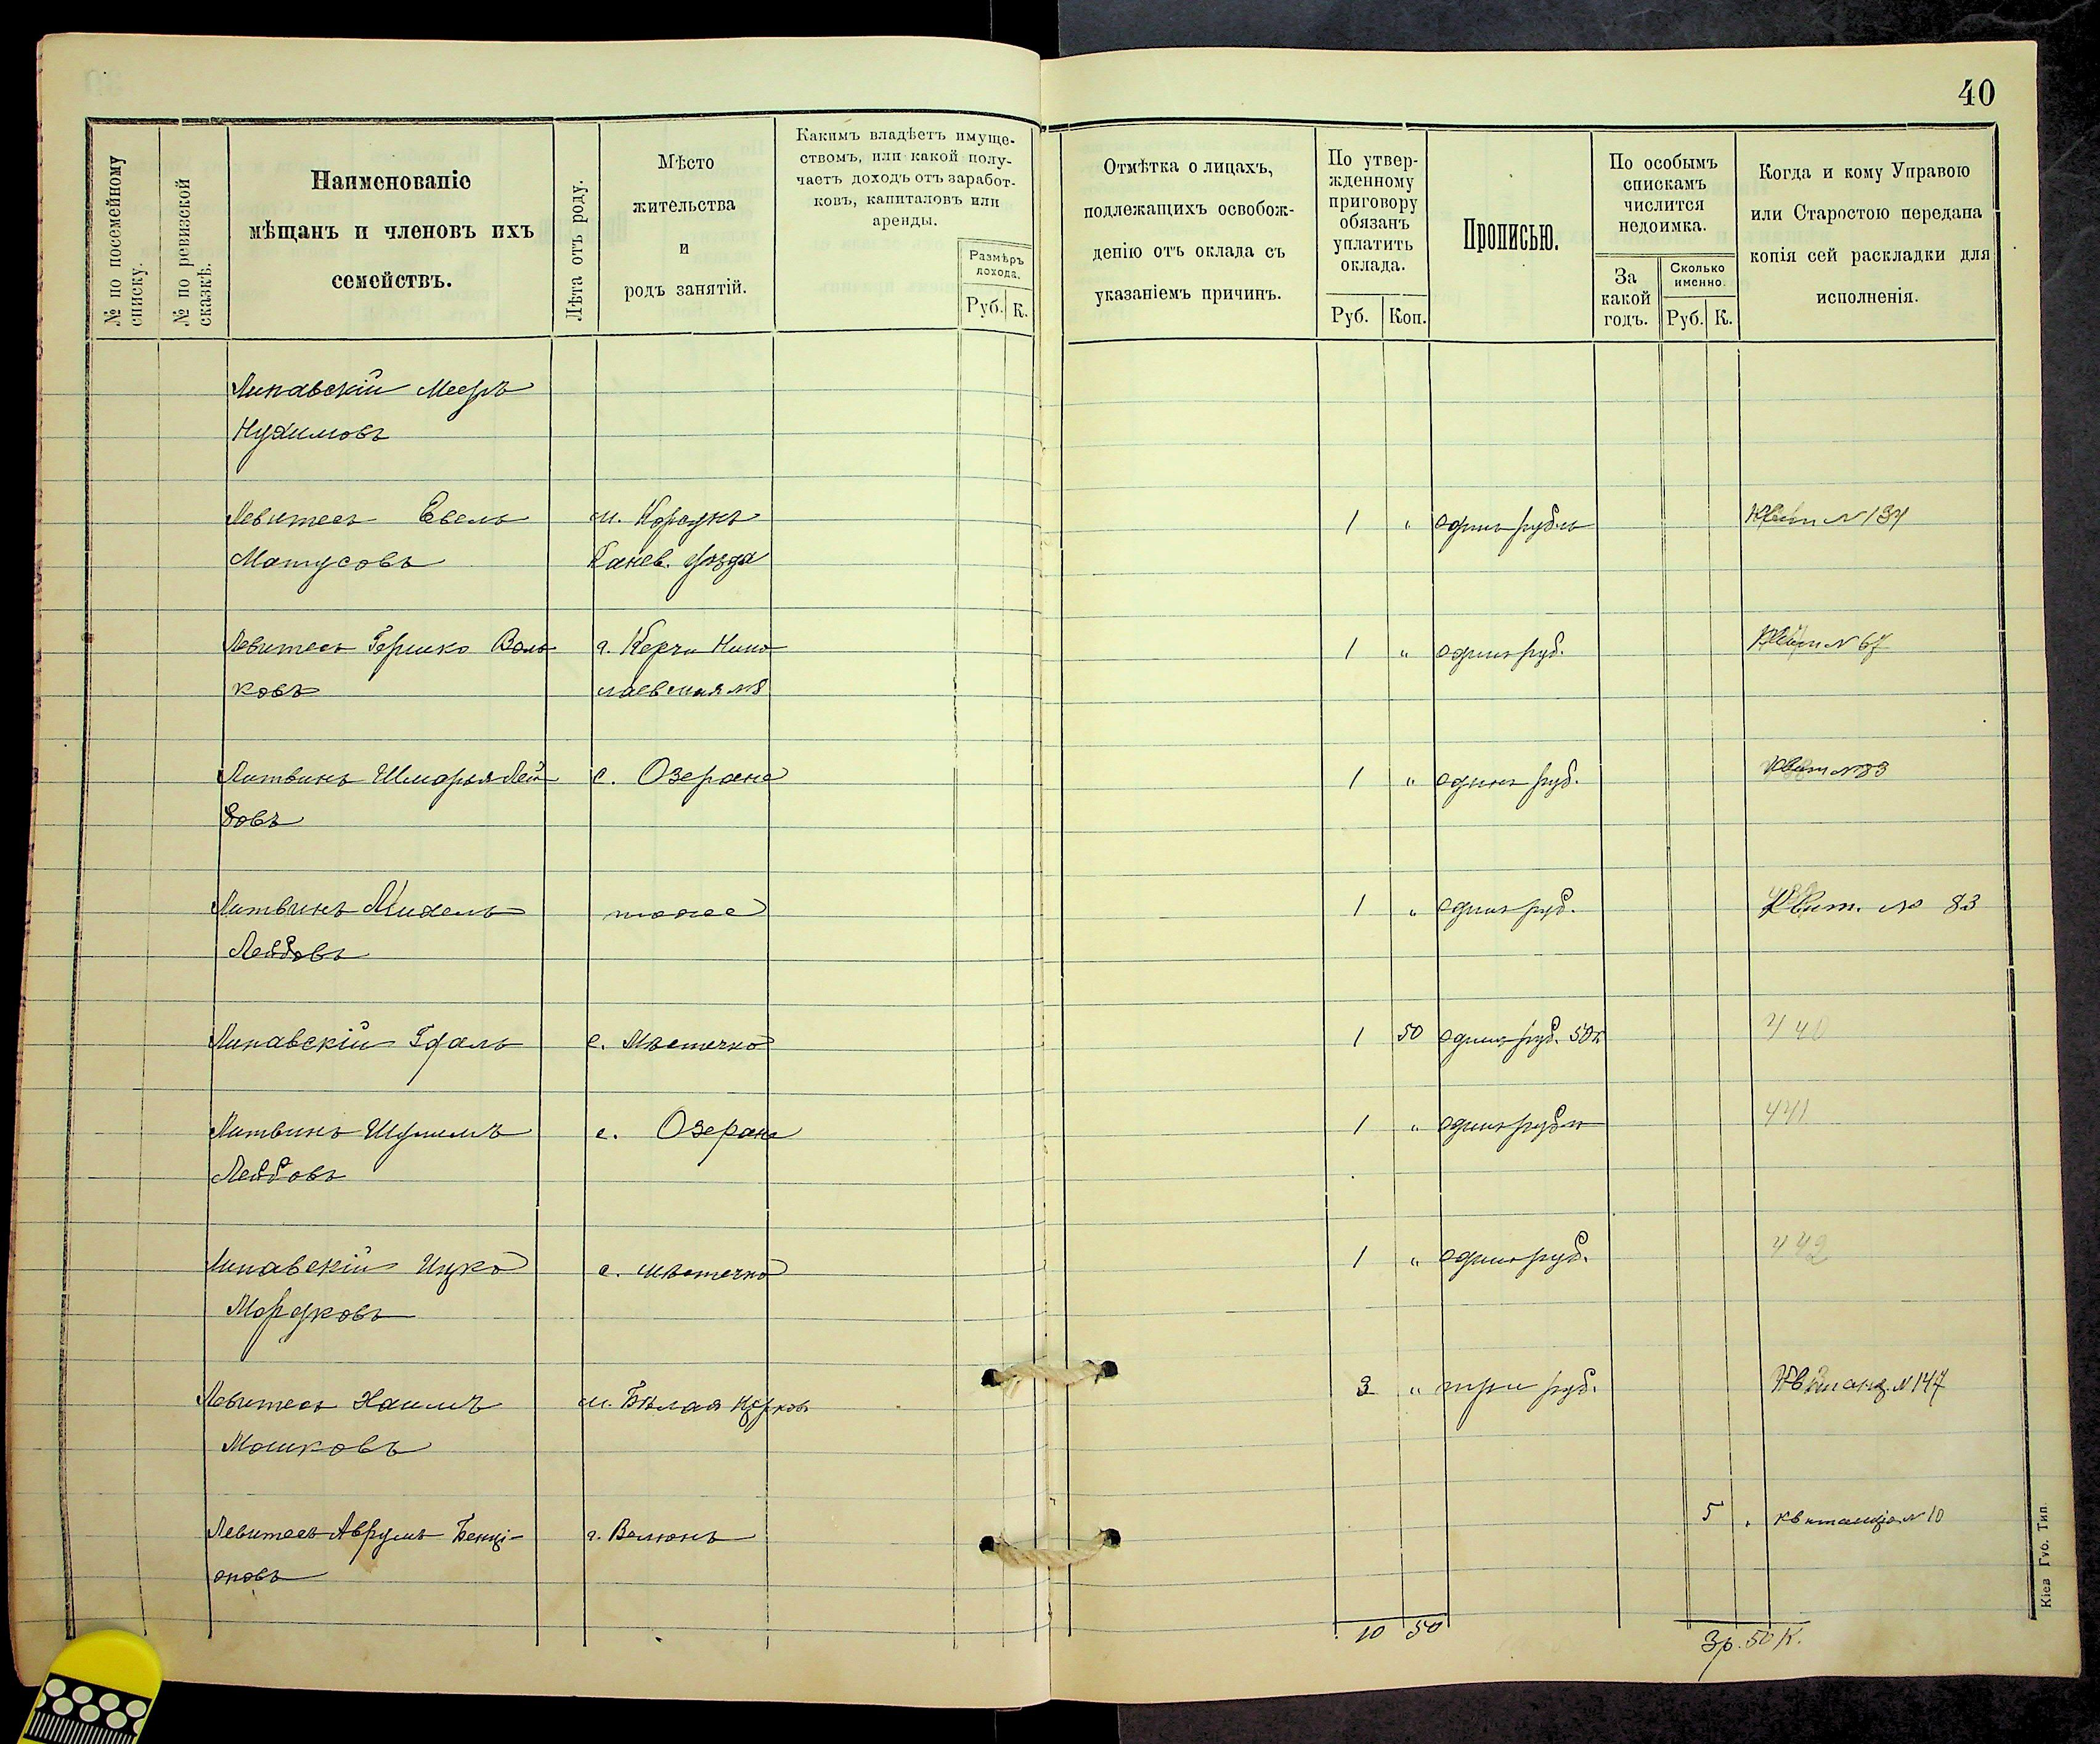 40
№ по посемейному списку.
№ по ревизской сказкѣ.
Наименованіе
мѣщанъ и членовъ ихъ
семействъ.
Лѣта отъ роду.
Мѣсто
жительства
и
родъ занятій.
Какимъ владѣетъ имуще-
ствомъ, или какой полу-
чаетъ доходъ отъ заработ-
ковъ, капиталовъ или
аренды.
Размѣръ
дохода.
Руб. К.
Отмѣтка о лицахъ,
подлежащихъ освобож-
денію отъ оклада съ
указаніемъ причинъ.
По утвер-
жденному
приговору
обязанъ
уплатить
оклада.
Руб. Коп.
Прописью.
По особымъ
спискамъ
числится
недоимка.
За
какой
годъ.
Сколько
именно.
Руб. К.
Когда и кому Управою
или Старостою передана
копія сей раскладки для
исполненія.
Липавскій Мееръ
Нухимовъ
Левитесъ Евель м. Корсунь 1 " одинъ рубль Квит № 134
Матусовъ Канев. уѣзда
Левитесъ Гершко Воль г. Керчи Нико 1 " одинъ руб. Квит № 67
ковъ лаевская №8
Литвинъ Шмарья Лей с. Озерана 1 " одинъ руб. Квит № 83
бовъ
Литвинъ Михель тоже 1 " одинъ руб. Квит. № 83
Лейбовъ
Липавскій Гдаль с. Мѣстечко 1 50 одинъ руб. 50к 440
Литвинъ Шулимъ с. Озерана 1 " одинъ рубль 441
Лейбовъ
Липавскій Ицко с. мѣстечко 1 " одинъ руб. 442
Мордковъ
Левитесъ Хаимъ м. Бѣлая Церковь 3 " три руб. Квитанц. № 147
Мошковъ
Левитесъ Аврумъ Бенці- г. 5 " квитанція № 10
оновъ
10 50
3р. 50 К.
Кіев Губ. Тип.